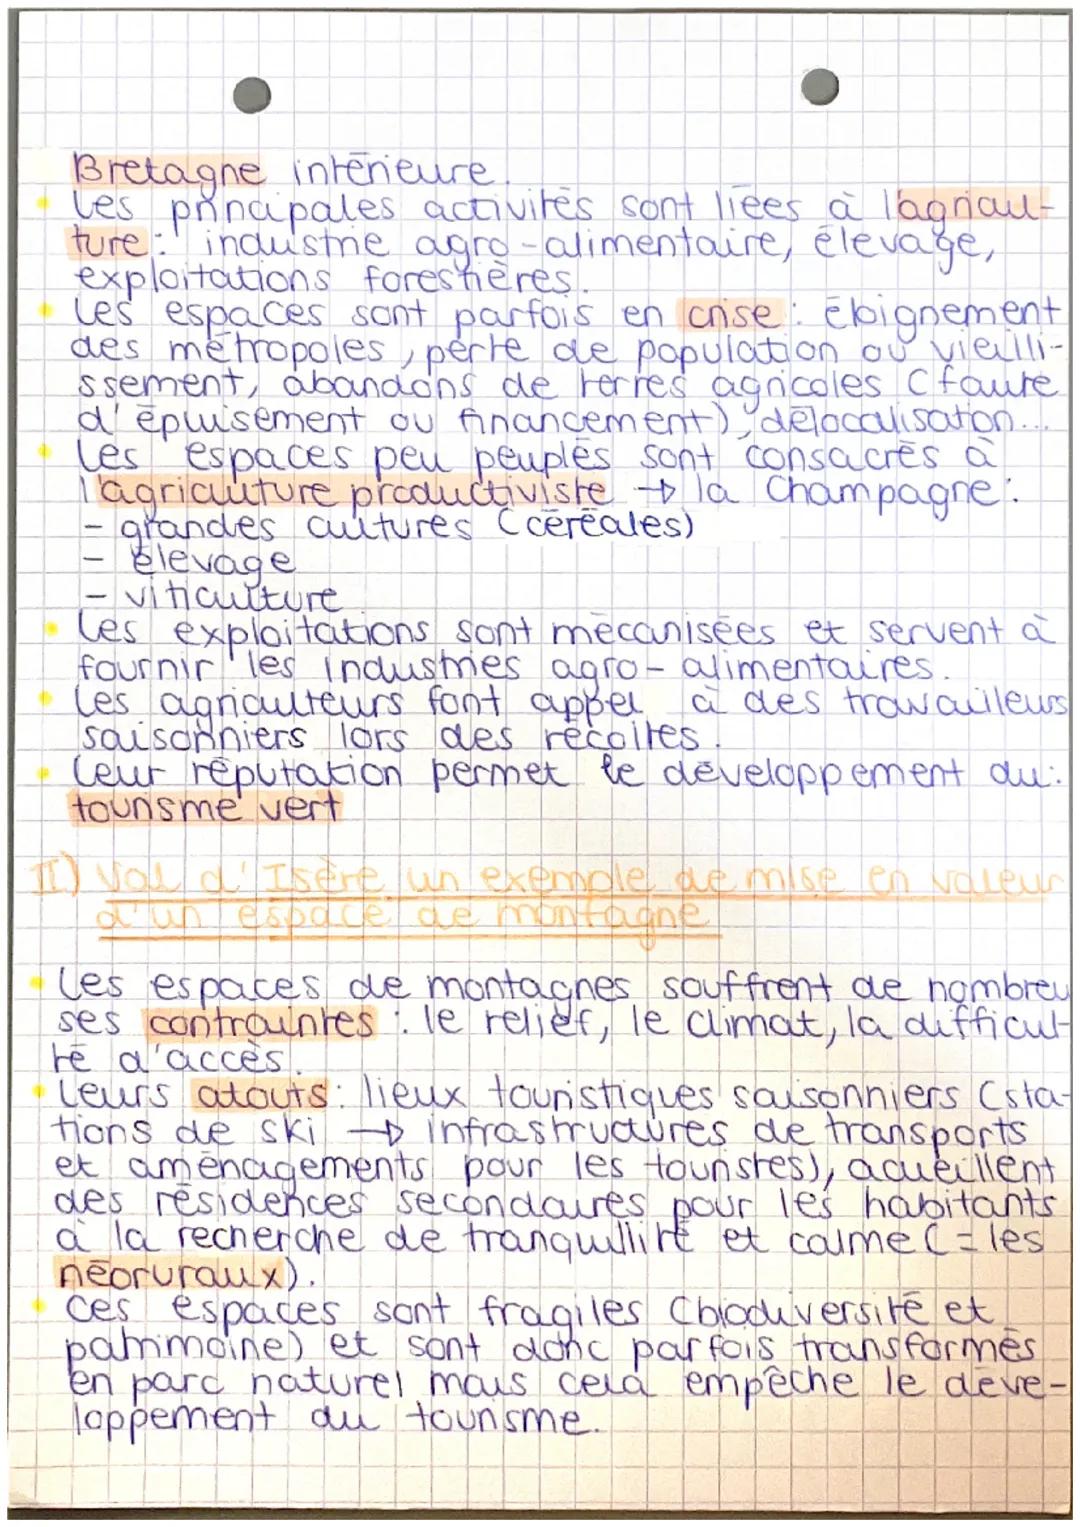 Bretagne intérieure.
Les principales activités sont liées à l'agricul-
ture : industrie agro-alimentaire, élevage,
exploitations forestières.
Les espaces sont parfois en crise : éloignement
des métropoles, perte de population ou vieilli-
ssement, abandons de terres agricoles (faute
d'épuisement ou financement), délocalisation...
Les espaces peu peuplés sont consacrés à
l'agriculture productiviste → la Champagne :
- grandes cultures (céréales)
- élevage
- viticulture
Les exploitations sont mécanisées et servent à
fournir les industries agro-alimentaires.
Les agriculteurs font appel à des travailleurs
saisonniers lors des récoltes.
Leur réputation permet le développement du :
tourisme vert
II) Val d'Isère un exemple de mise en valeur
d'un espace de montagne
Les espaces de montagnes souffrent de nombreu
ses contraintes : le relief, le climat, la difficul-
té d'accès.
Leurs atouts : lieux touristiques saisonniers (sta-
tions de ski → infrastructures de transports
et aménagements pour les touristes), acueillent
des résidences secondaires pour les habitants
à la recherche de tranquillité et calme (= les
néoruraux).
Ces espaces sont fragiles (biodiversité et
patrimoine) et sont donc parfois transformés
en parc naturel mais cela empêche le déve-
loppement du tourisme.